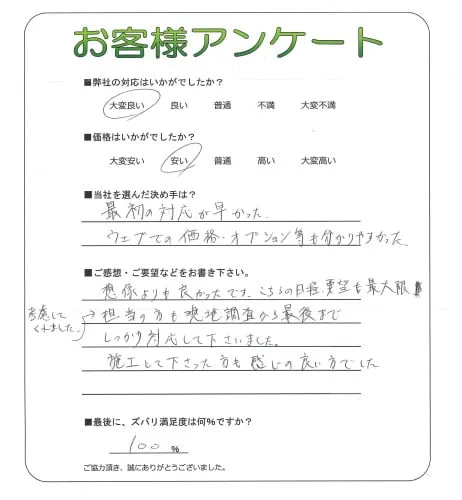 お客様アンケート
■弊社の対応はいかがでしたか？
大変良い 良い 普通 不満 大変不満
■価格はいかがでしたか？
大変安い 安い 普通 高い 大変高い
■当社を選んだ決め手は？
最初の対応が早かった。
ウェブでの価格・オプション等も分かりやすかった
■ご感想・ご要望などをお書き下さい。
想像よりも良かったです。こちらの日程、要望も最大限
考慮して
くれました。
→担当の方も現地調査から最後まで
しっかり対応して下さいました。
施工して下さった方も感じの良い方でした
■最後に、ズバリ満足度は何％ですか？
100 ％
ご協力頂き、誠にありがとうございました。